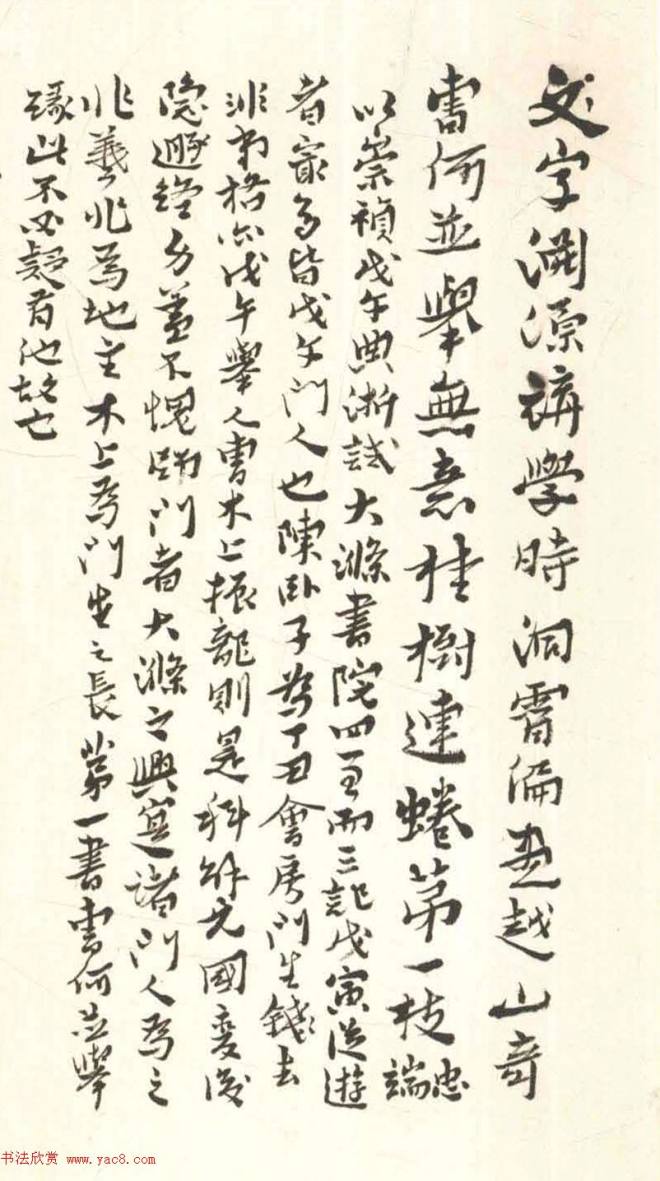 文字淵源講學時洞霄畫越山奇
曹何並舉無意桂樹連蜷第一枝忠端
以崇禎戊午典浙試大滌書院四至而三記戊寅從遊
者最多皆戊午門人也陳卧子為丁丑會房門生錢去
非格亦戊午舉人曹木上振龍則是科解元國變後
隱遯終身蓋不愧師門者大滌之興造諸門人為之
羲兆為地主木上為門生之長第一書曹何並舉
緣此不必疑有他故也
书法欣赏 www.yac8.com